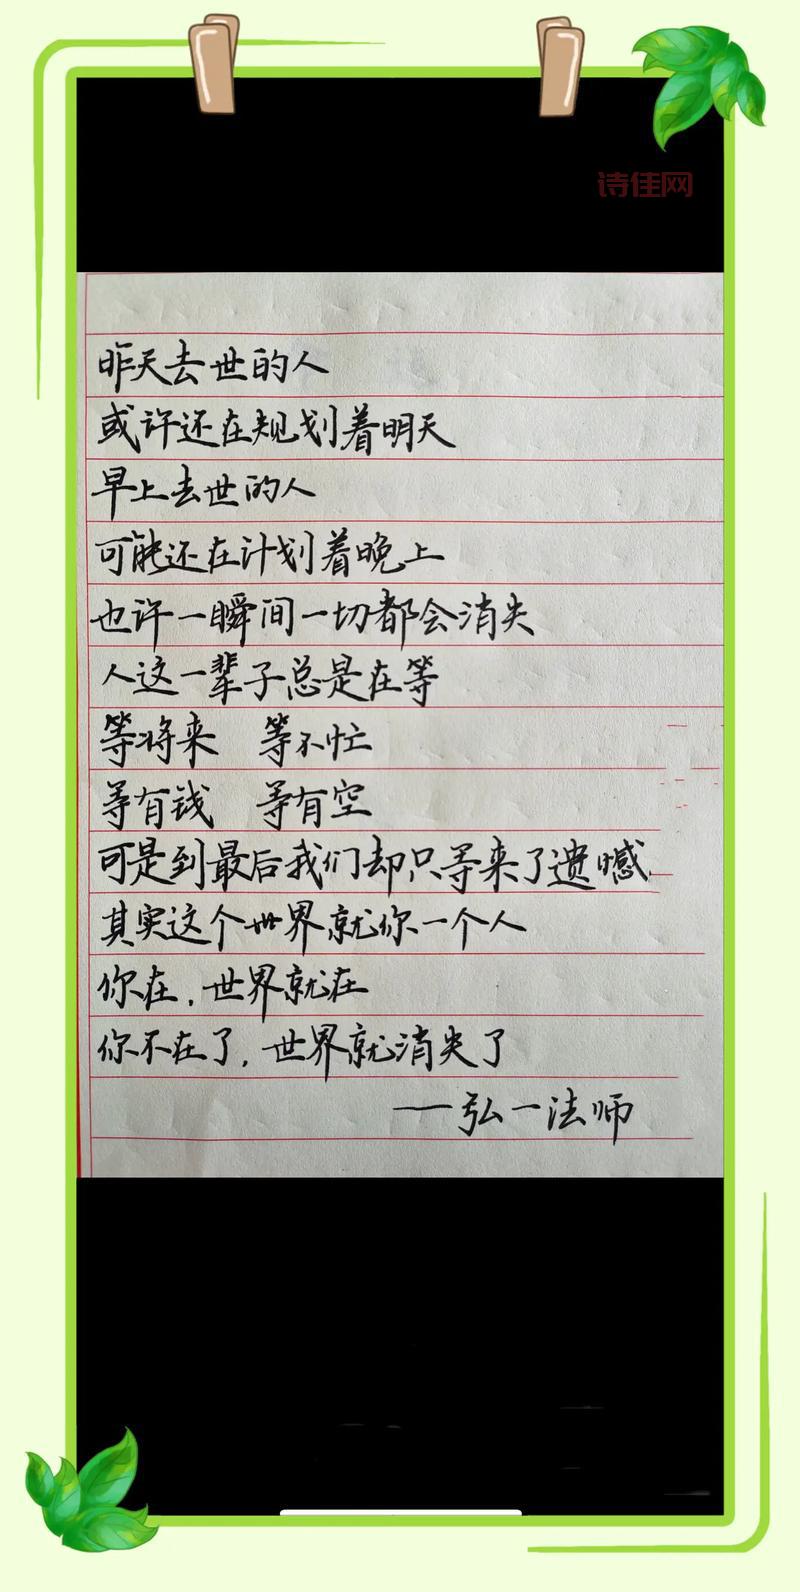 诗佳网
昨天去世的人
或许还在规划着明天
早上去世的人
可能还在计划着晚上
也许一瞬间一切都会消失
人这一辈子总是在等
等将来 等不忙
等有钱 等有空
可是到最后我们却只等来了遗憾
其实这个世界就你一个人
你在,世界就在
你不在了,世界就消失了
——弘一法师